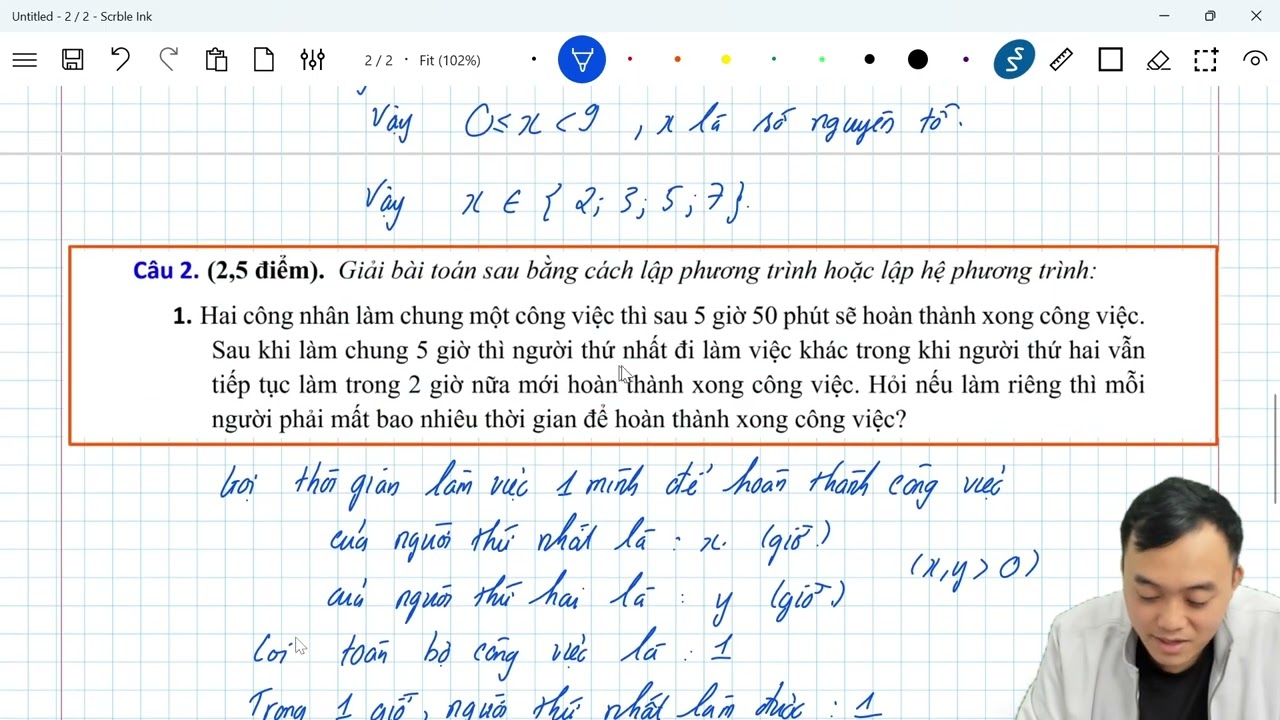 Untitled - 2 / 2 - Scrble Ink
2 / 2 · Fit (102%)
Vậy 0 ≤ x < 9 , x là số nguyên tố.
Vậy x ∈ { 2; 3; 5; 7}.
Câu 2. (2,5 điểm). Giải bài toán sau bằng cách lập phương trình hoặc lập hệ phương trình:
1. Hai công nhân làm chung một công việc thì sau 5 giờ 50 phút sẽ hoàn thành xong công việc.
Sau khi làm chung 5 giờ thì người thứ nhất đi làm việc khác trong khi người thứ hai vẫn
tiếp tục làm trong 2 giờ nữa mới hoàn thành xong công việc. Hỏi nếu làm riêng thì mỗi
người phải mất bao nhiêu thời gian để hoàn thành xong công việc?
Gọi thời gian làm việc 1 mình để hoàn thành công việc
của người thứ nhất là : x (giờ)
(x,y > 0)
của người thứ hai là : y (giờ)
Coi toàn bộ công việc là : 1
Trong 1 giờ, người thứ nhất làm được : 1